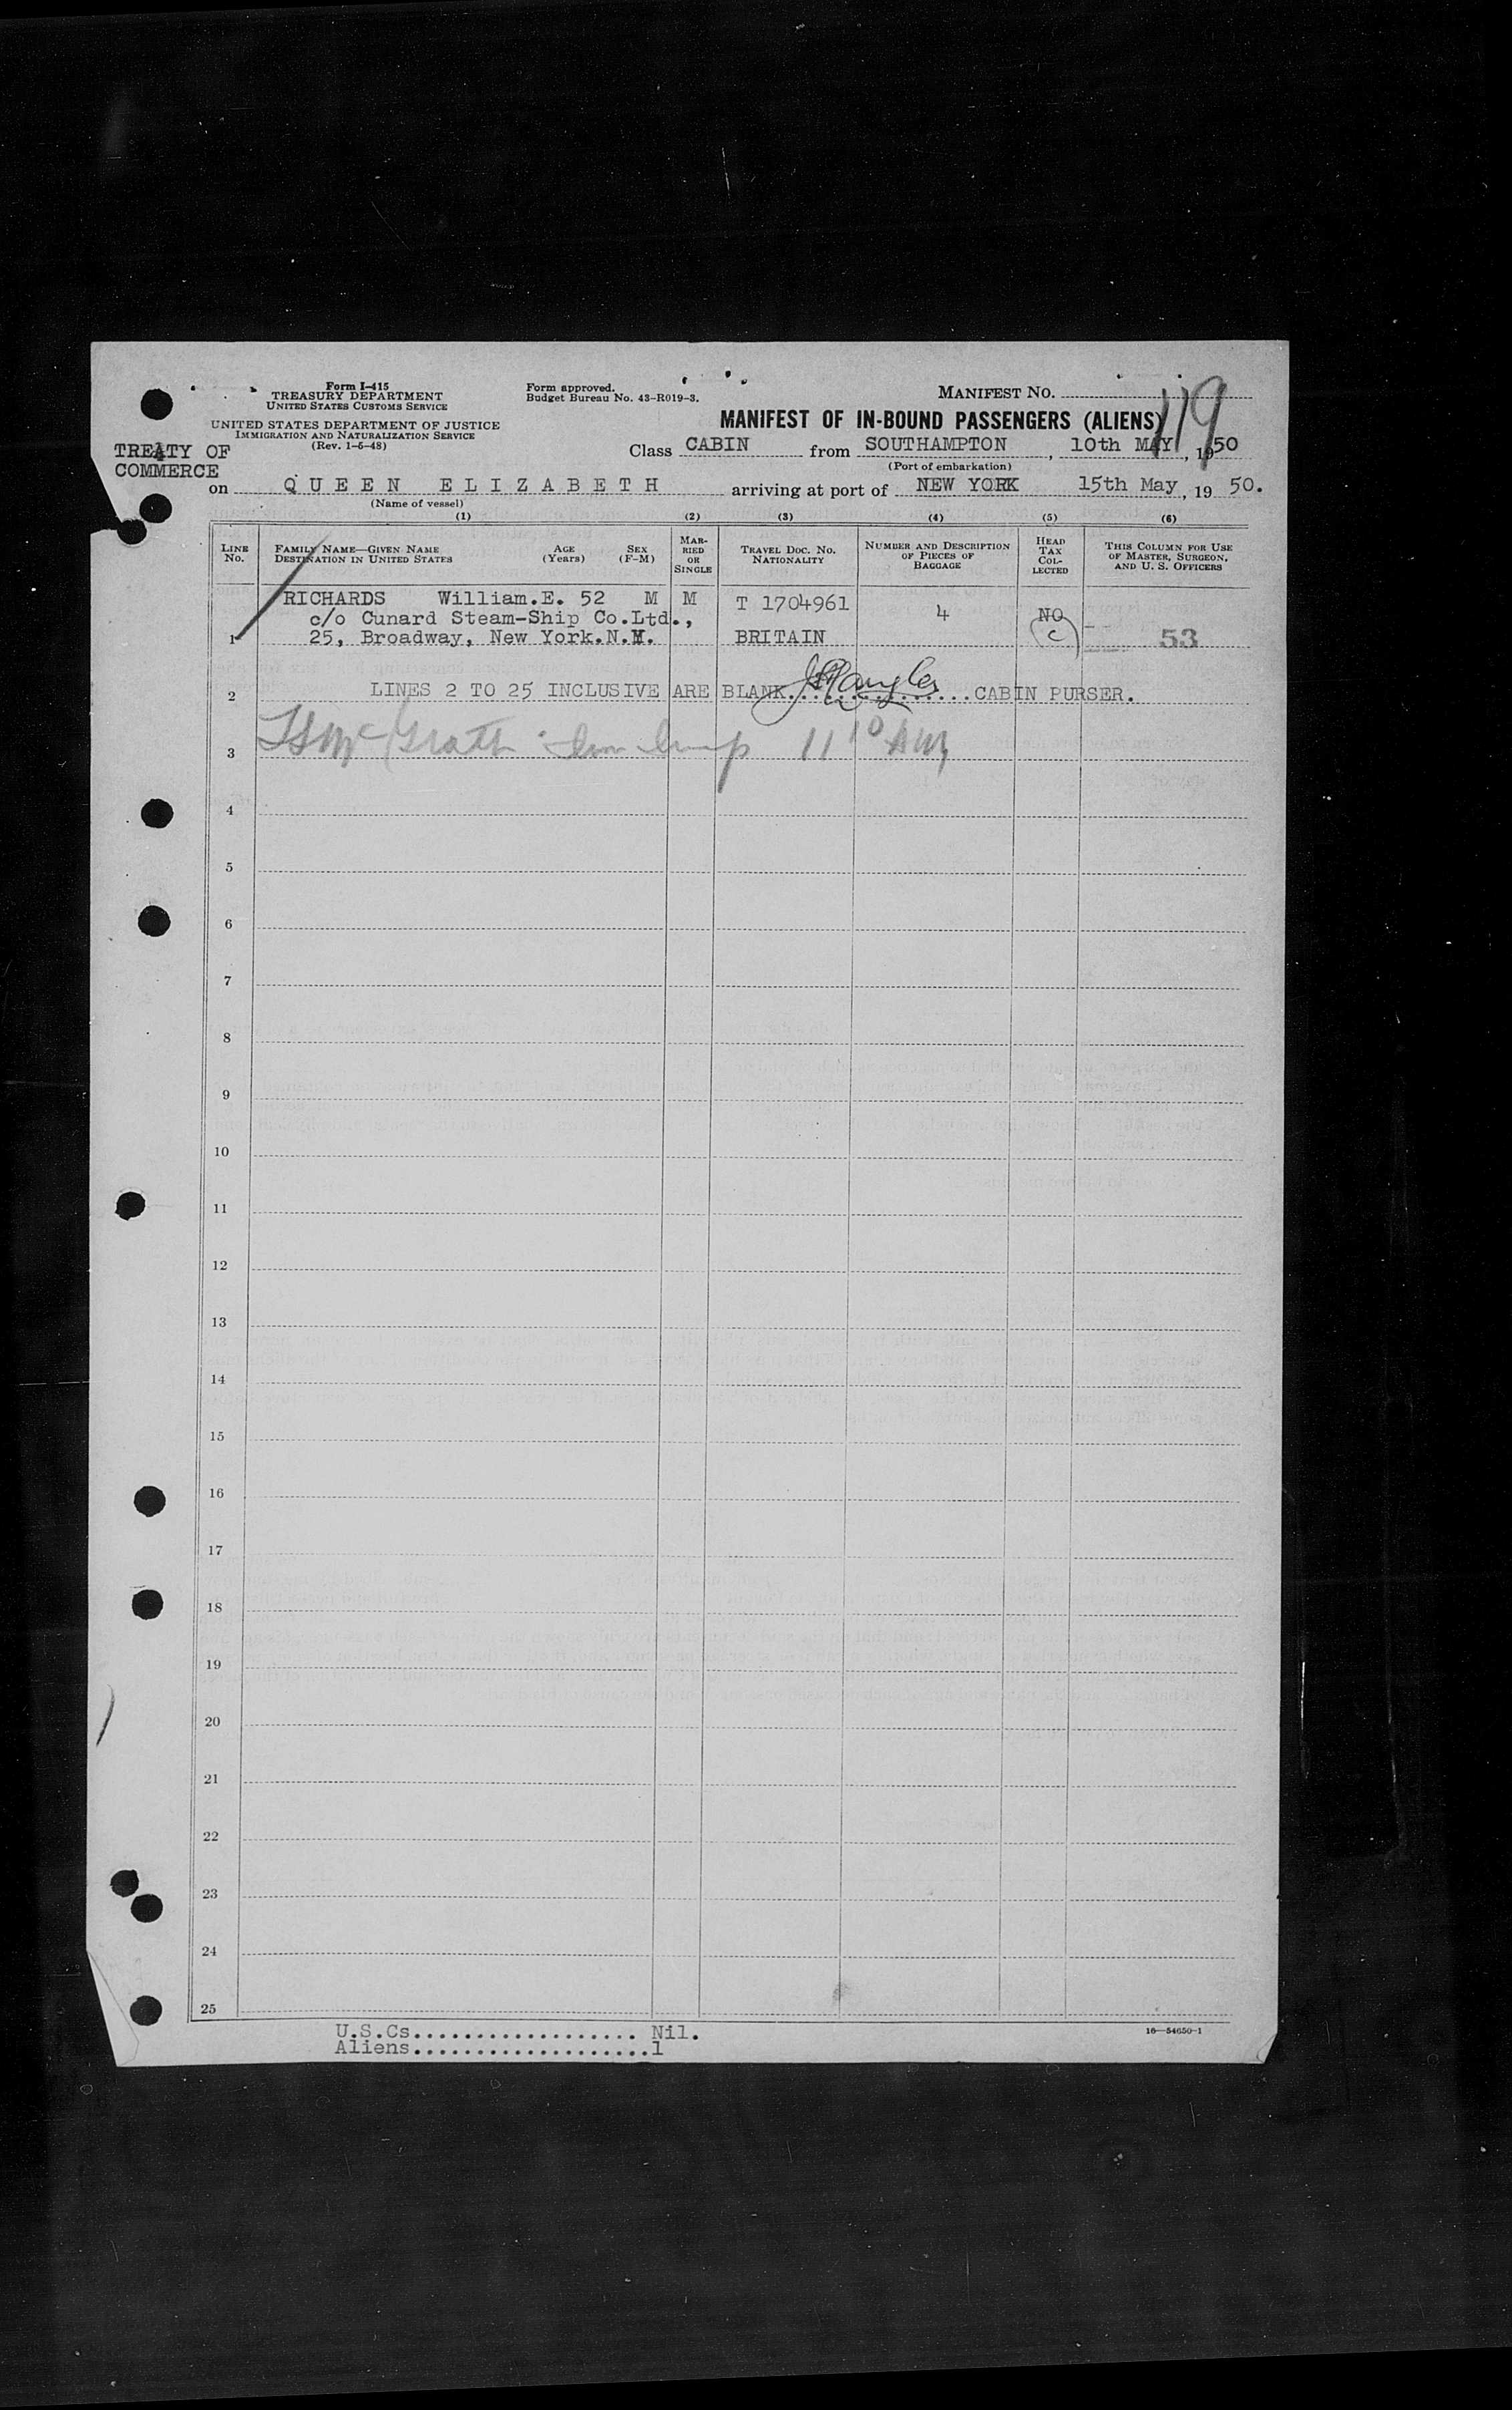 Form I-415
TREASURY DEPARTMENT
UNITED STATES CUSTOMS SERVICE
UNITED STATES DEPARTMENT OF JUSTICE
IMMIGRATION AND NATURALIZATION SERVICE
(Rev. 1-6-48)
Form approved.
Budget Bureau No. 43-R019-3.
MANIFEST NO.
119
MANIFEST OF IN-BOUND PASSENGERS (ALIENS)
TREATY OF
COMMERCE
Class CABIN from SOUTHAMPTON, 10th MAY, 1950
(Port of embarkation)
on QUEEN ELIZABETH arriving at port of NEW YORK 15th May, 19 50.
(Name of vessel)
(1) (2) (3) (4) (5) (6)
LINE NO.
FAMILY NAME—GIVEN NAME
DESTINATION IN UNITED STATES
AGE (Years)
SEX (F-M)
MARRIED OR SINGLE
TRAVEL DOC. NO. NATIONALITY
NUMBER AND DESCRIPTION OF PIECES OF BAGGAGE
HEAD TAX COLLECTED
THIS COLUMN FOR USE OF MASTER, SURGEON, AND U. S. OFFICERS
RICHARDS William.E. 52 M M T 1704961 4 NO
c/o Cunard Steam-Ship Co.Ltd.,
1 25, Broadway, New York.N.Y. BRITAIN c 53
2 LINES 2 TO 25 INCLUSIVE ARE BLANK.................CABIN PURSER.
3 McGrath 11 10 AM
4
5
6
7
8
9
10
11
12
13
14
15
16
17
18
19
20
21
22
23
24
25
U.S.Cs................... Nil.
Aliens....................1
16—54650-1